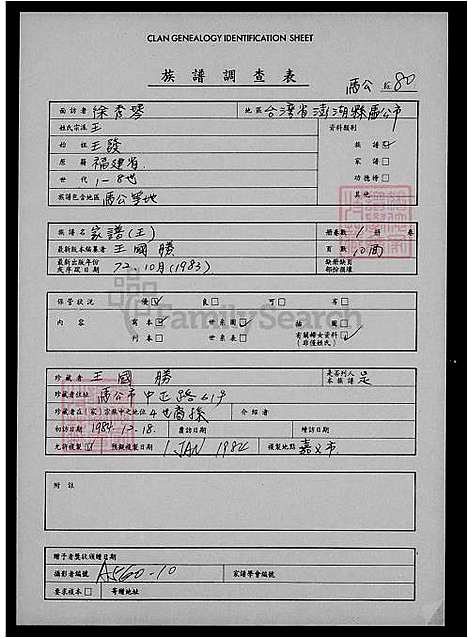 CLAN GENEALOGY IDENTIFICATION SHEET
族譜調查表
馬公 80
面訪者 徐秀琴 地區 台灣省澎湖縣馬公市
姓氏宗派 王 資料類別
始祖 王發 族譜
原籍 福建省 家譜
世代 1-8世 功德榜
族譜包含地區 馬公等地
族譜名 家譜(王) 冊卷數 1 冊 卷
最新版本編纂者 王國勝 頁數 10面
最新出版年份或序跋日期 72.10月(1983) 缺冊缺頁部份損壞
保管狀況 優 良 可 劣
內容 寫本 世系圖 插圖
刊本 世系表 有關婦女資料(非僅姓氏)
FamilySearch
珍藏者 王國勝 是否列入本族譜 是
珍藏者住址 馬公市中正路61号
珍藏者在(家)宗族中之地位 介紹者
初訪日期 1984.12.18. 農訪日期 增訪日期
允許複製 預擬複製日期 1 JAN 1984 複製地點 嘉义市
附註
贈予者獎狀頒贈日期
攝影者編號 A560-10 家譜學會編號
要求複本 寄贈日期